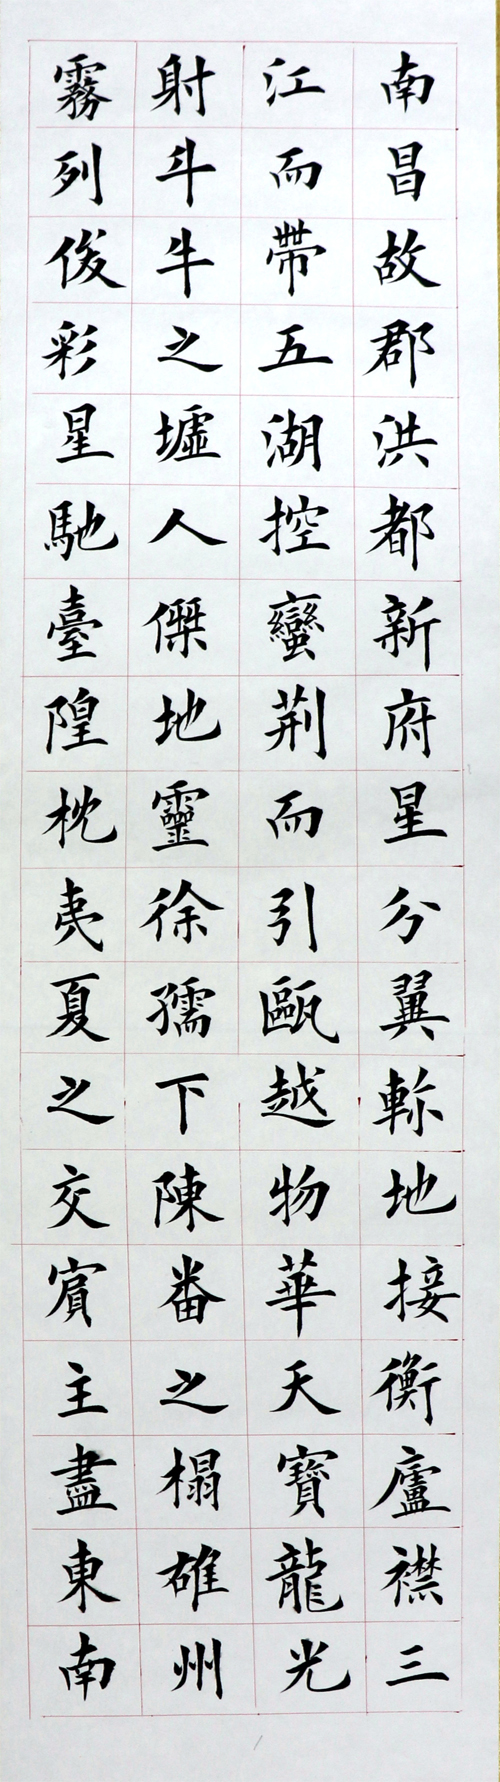 南昌故郡洪都新府星分翼軫地接衡廬襟三
江而帶五湖控蠻荆而引甌越物華天寶龍光
射斗牛之墟人傑地靈徐孺下陳番之榻雄州
霧列俊彩星馳臺隍枕夷夏之交賓主盡東南